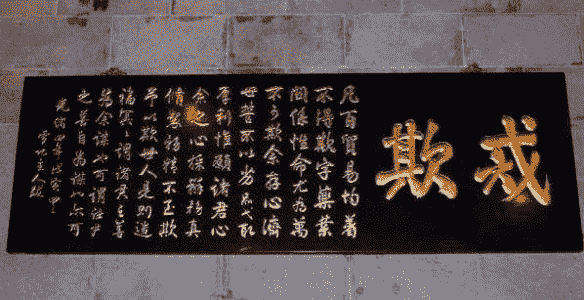 戒欺
凡百貿易均着
不得欺字藥業
關係性命尤為萬
不可欺余存心濟
世誓不以劣品弋取
厚利惟願諸君心
余之心採辦務真
修製務精不至欺
予以欺世人是則造
福冥冥謂諸君之善
為余謀也可謂諸君
之善自為謀也亦可
光緒
雪記主人跋